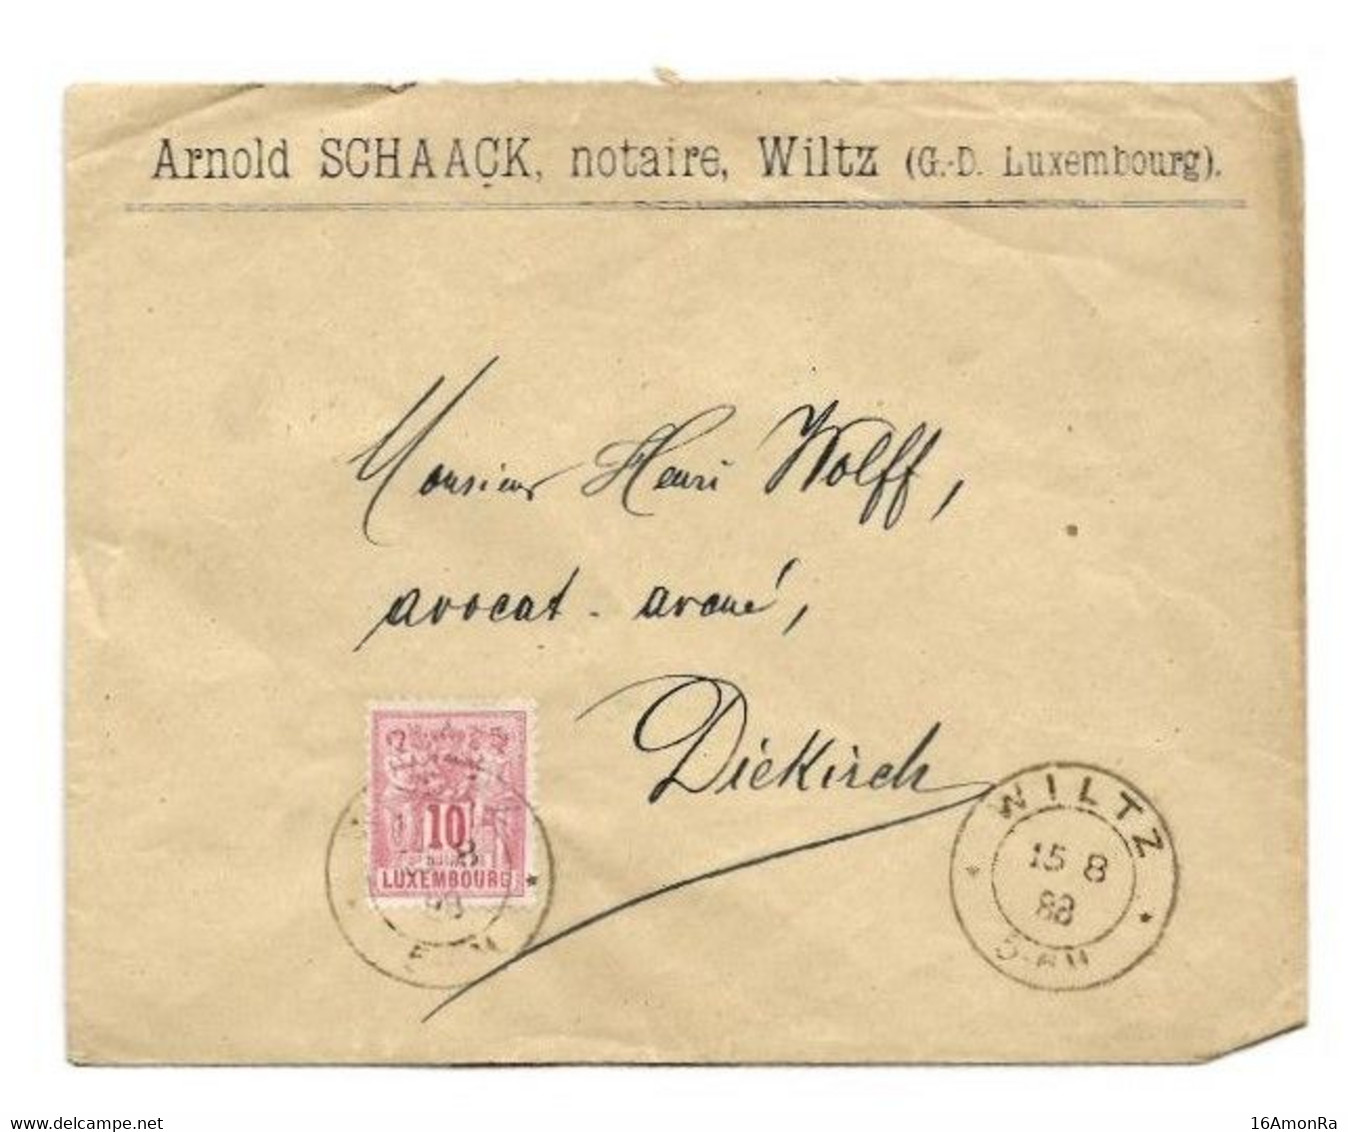 Arnold SCHAACK, notaire, Wiltz (G.-D. Luxembourg).
Monsieur Henri Wolff,
avocat-avoué,
Diekirch
10
LUXEMBOURG
WILTZ
15 8
88
5-6 M
www.delcampe.net
16AmonRa